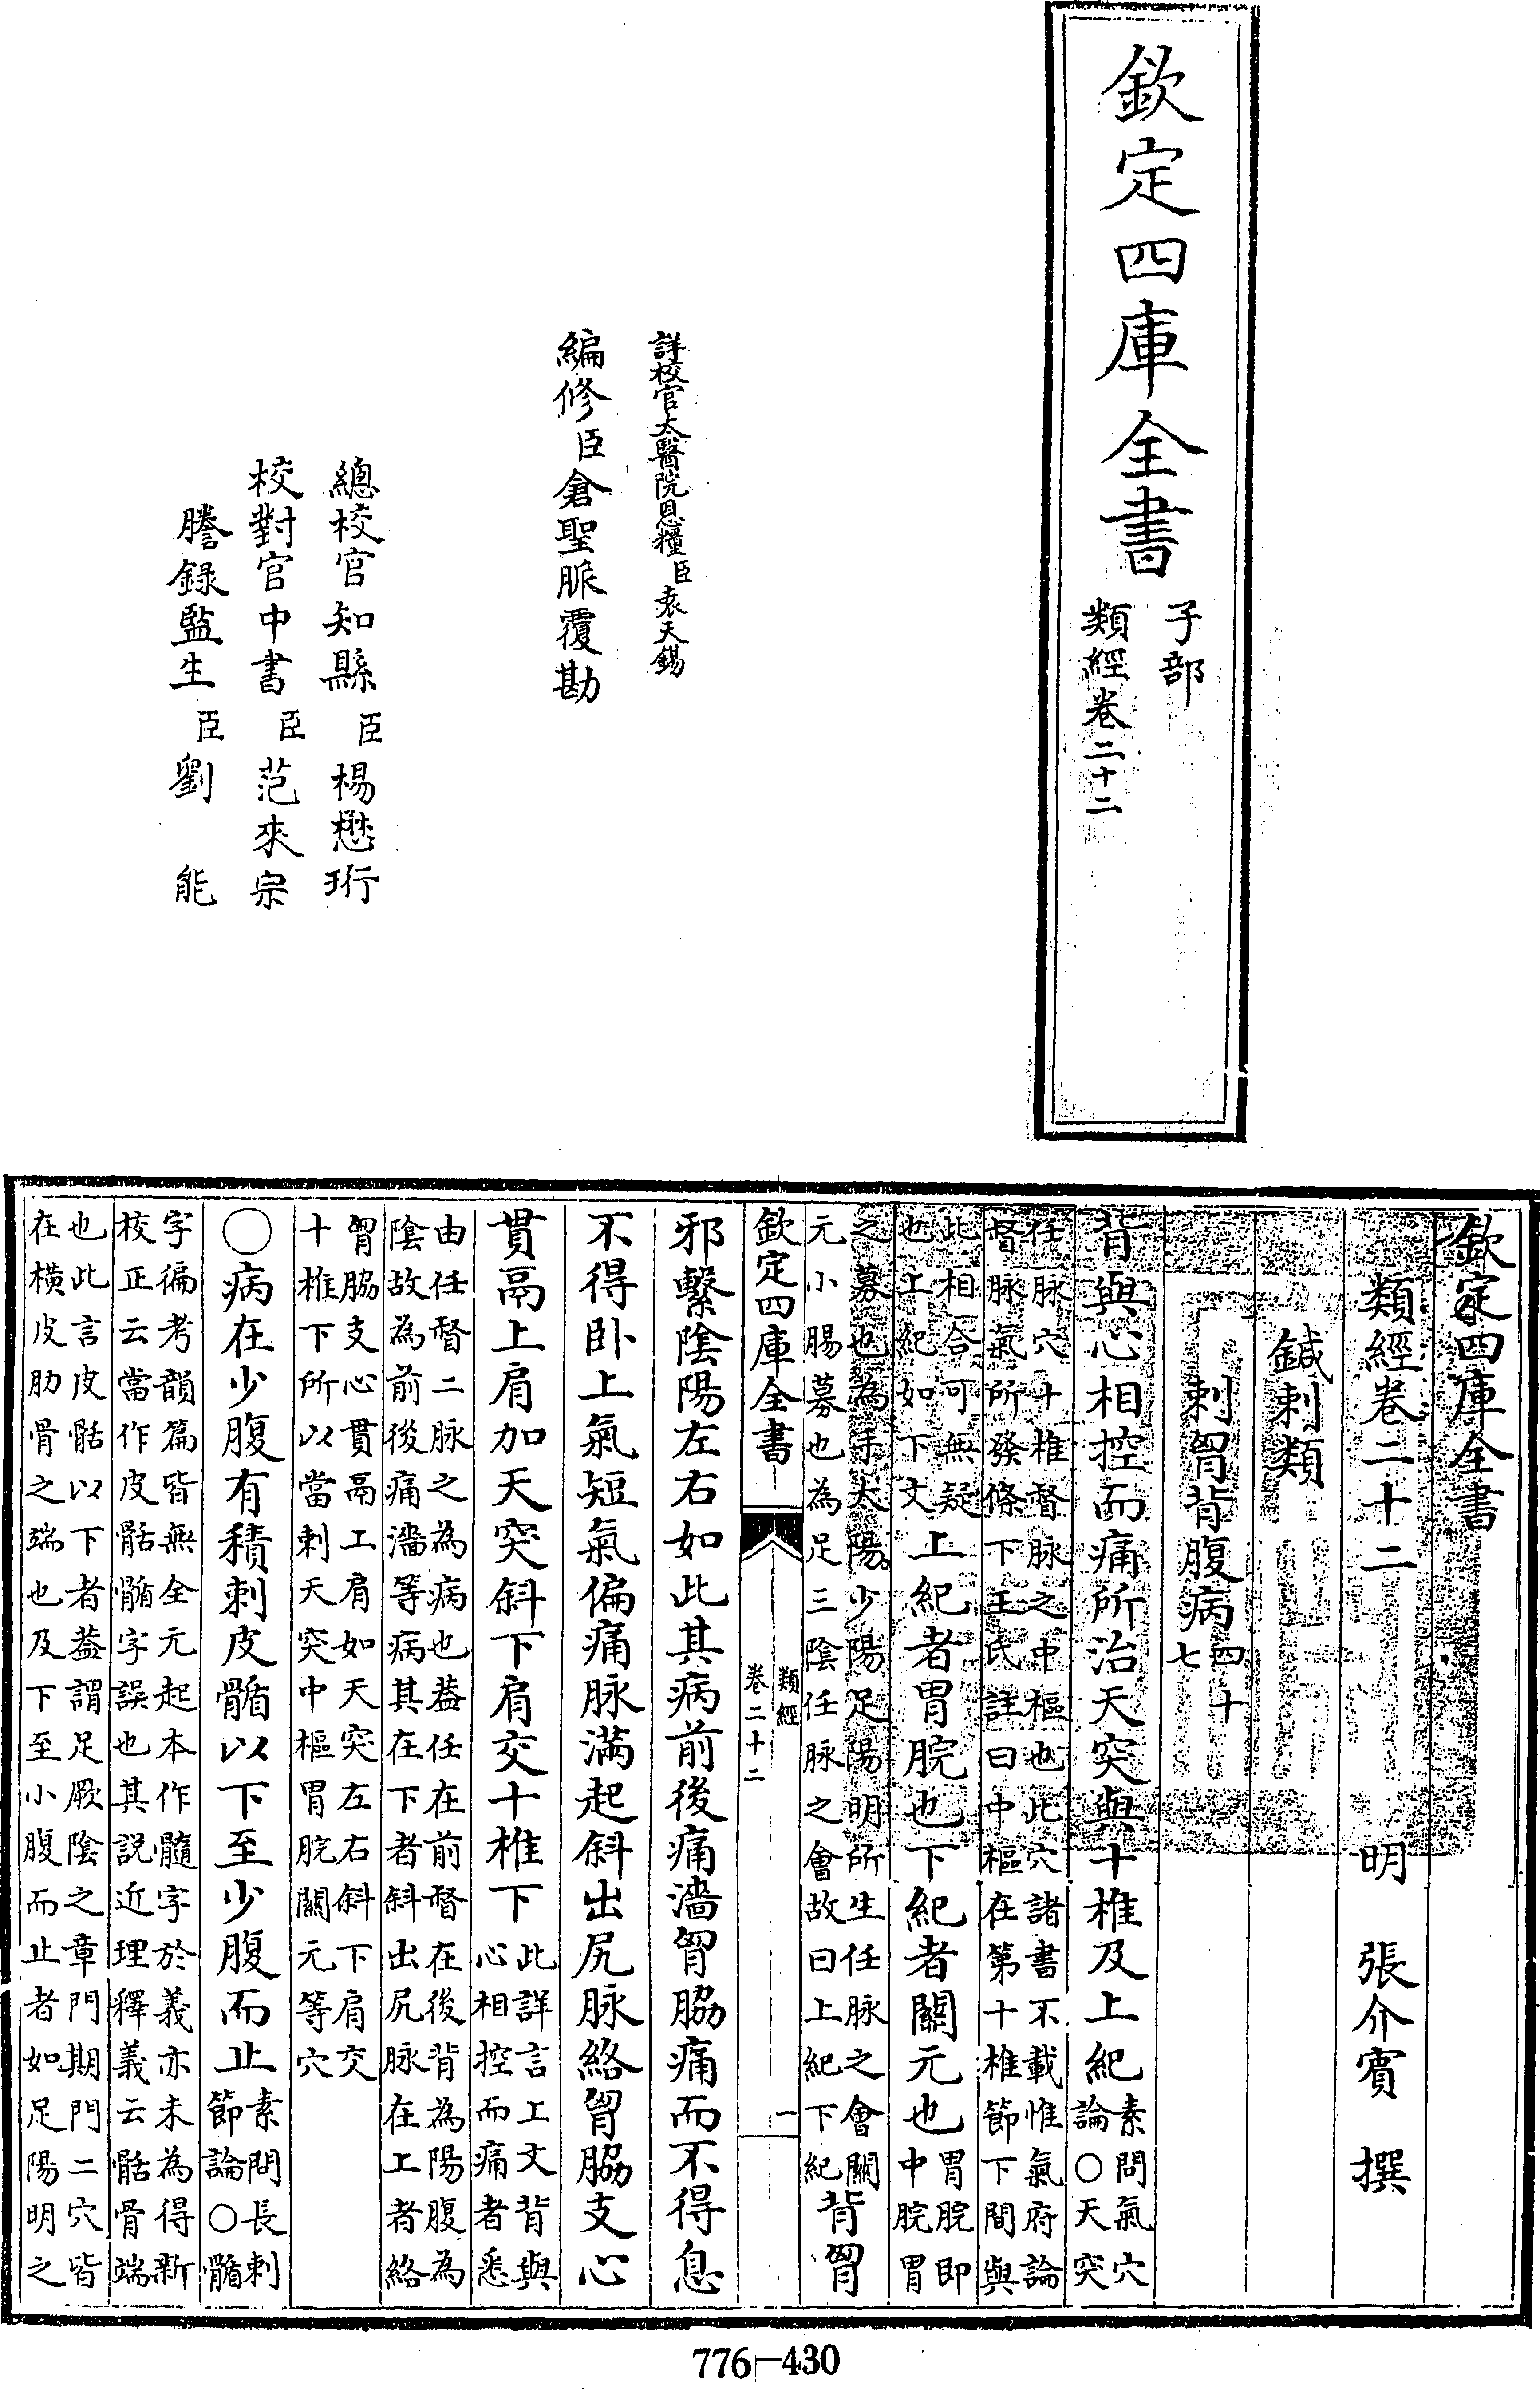 欽定四庫全書
子部
類經卷二十二
詳校官太醫院恩糧臣袁天錫
編修臣倉聖脈覆勘
總校官知縣臣楊懋珩
校對官中書臣范來宗
謄錄監生臣劉能
欽定四庫全書
類經卷二十二 明 張介賓 撰
鍼刺類
刺胷背腹病四十七
背與心相控而痛所治天突與十椎及上紀素問氣穴論○天突
任脉穴十椎督脉之中樞也此穴諸書不載惟氣府論
督脉氣所發條下王氏註曰中樞在第十椎節下間與
此相合可無疑
也上紀如下文上紀者胃脘也下紀者關元也胃脘即中脘胃
之募也為手太陽少陽足陽明所生任脉之會關
元小腸募也為足三陰任脉之會故曰上紀下紀背胷
欽定四庫全書
類經
卷二十二
一
邪繫陰陽左右如此其病前後痛濇胷脇痛而不得息
不得卧上氣短氣偏痛脉滿起斜出尻脉絡胷脇支心
貫鬲上肩加天突斜下肩交十椎下此詳言上文背與心相控而痛者悉
由任督二脉之為病也葢任在前督在後背為陽腹為
陰故為前後痛濇等病其在下者斜出尻脉在上者絡
胷脇支心貫鬲上肩如天突左右斜下肩交
十椎下所以當刺天突中樞胃脘關元等穴
○病在少腹有積刺皮䯏以下至少腹而止素問長刺節論○䯏
字徧考韻篇皆無全元起本作髓字於義亦未為得新
校正云當作皮骷䯏字誤也其説近理釋義云骷骨端
也此言皮骷以下者葢謂足厥陰之章門期門二穴皆
在橫皮肋骨之端也及下至小腹而止者如足陽明之
776-430